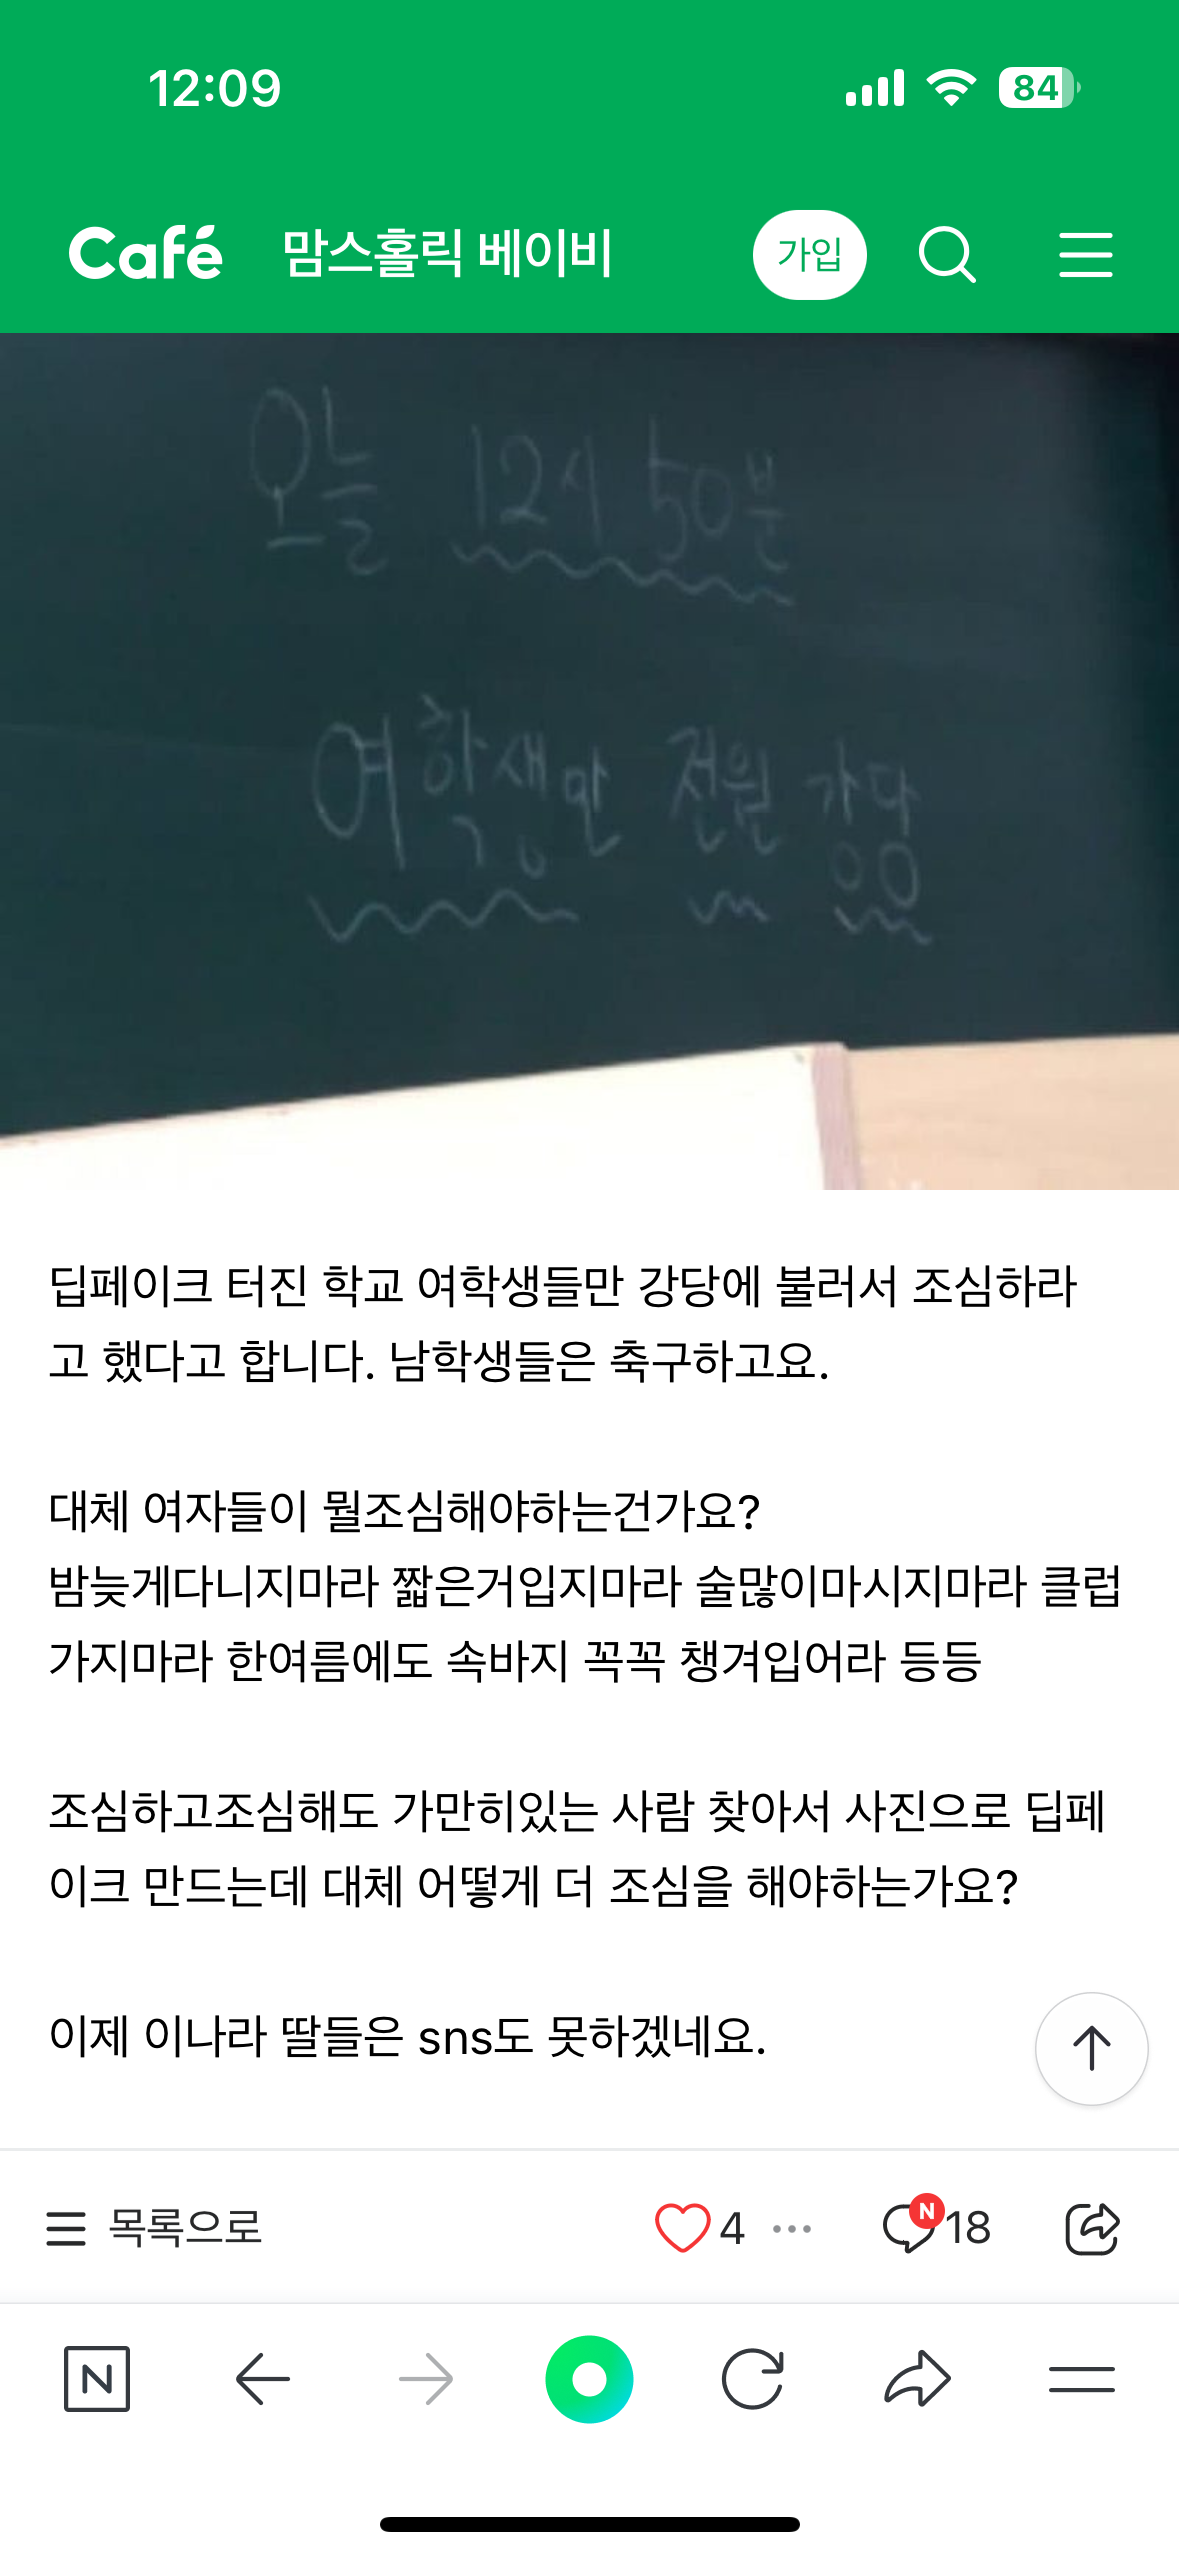 12:09
84
Café 맘스홀릭 베이비 가입
오늘 12시 50분
여학생만 전원 강당
딥페이크 터진 학교 여학생들만 강당에 불러서 조심하라
고 했다고 합니다. 남학생들은 축구하고요.
대체 여자들이 뭘조심해야하는건가요?
밤늦게다니지마라 짧은거입지마라 술많이마시지마라 클럽
가지마라 한여름에도 속바지 꼭꼭 챙겨입어라 등등
조심하고조심해도 가만히있는 사람 찾아서 사진으로 딥페
이크 만드는데 대체 어떻게 더 조심을 해야하는가요?
이제 이나라 딸들은 sns도 못하겠네요.
목록으로 4 N 18
N